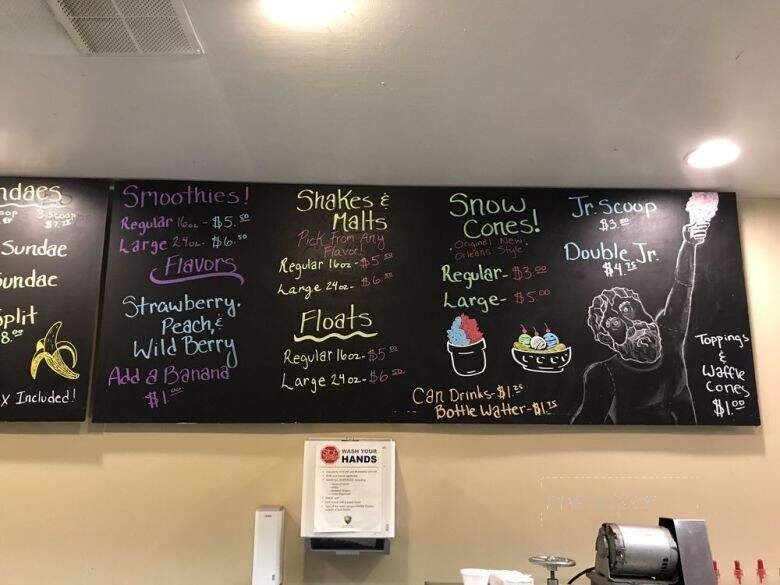 ndaes
3 Scoop
Sundae
undae
plit
8.00
x Included!
Smoothies!
Regular 16oz - $5.50
Large 24oz - $6.50
Flavors
Strawberry,
Peach, &
Wild Berry
Add a Banana
$1.00
Shakes &
Malts
Pick from Any
Flavor!
Regular 16oz - $5.50
Large 24oz - $6.50
Floats
Regular 16oz - $5.50
Large 24oz - $6.50
Snow
Cones!
Original New
Orleans Style
Regular - $3.00
Large - $5.00
Can Drinks - $1.25
Bottle Watter - $1.75
Jr. Scoop
$3.00
Double Jr.
$4.75
Toppings
&
Waffle
Cones
$1.00
STOP WASH YOUR
HANDS